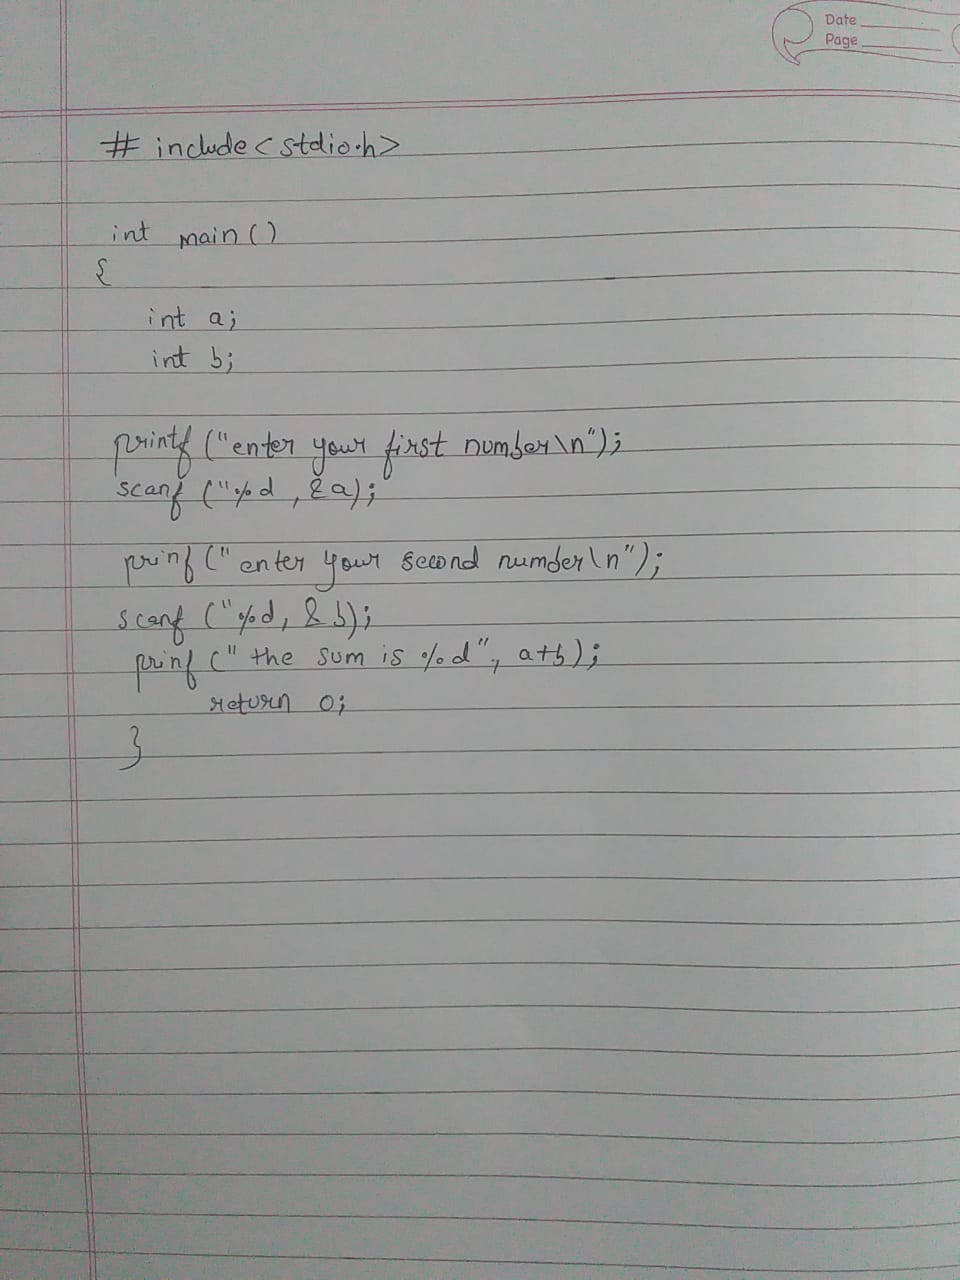 Date
Page
# include<stdio.h>
int main()
{
int a;
int b;
printf ("enter your first number\n");
scanf ("%d , &a);
prinf (" enter your second number\n");
scanf ("%d, & b);
prinf (" the sum is %d", a+b);
return 0;
}